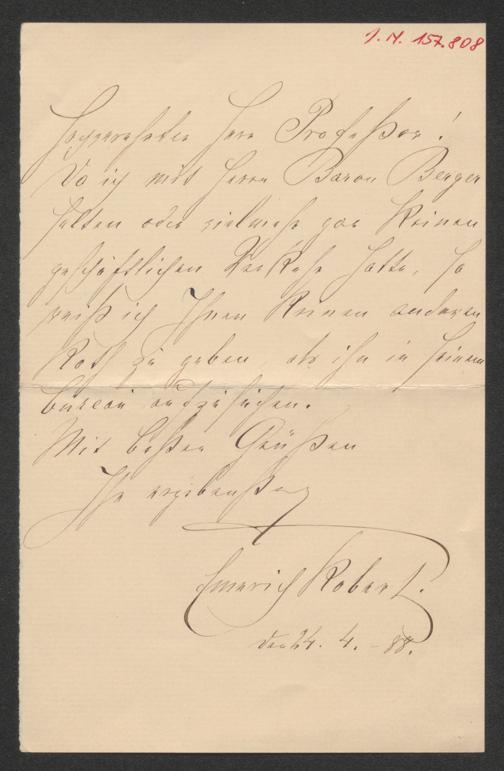 J. N. 157.808
Hochverehrter Herr Professor!
Da ich mit Herrn Baron Berger
selten oder vielmehr gar keinen
geschäftlichen Verkehr hatte, so
weiß ich Ihnen keinen anderen
Rath zu geben, als ihn in seinem
Bureau aufzusuchen.
Mit besten Grüßen
Ihr ergebenster
Emerich Robert.
den 24. 4. - 88.